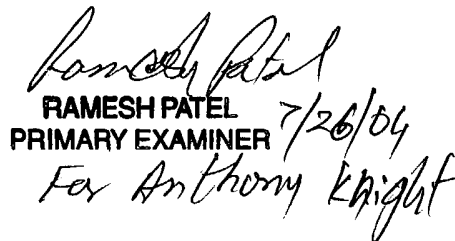 Ramesh Patel
RAMESH PATEL
PRIMARY EXAMINER 7/26/04
For Anthony Knight